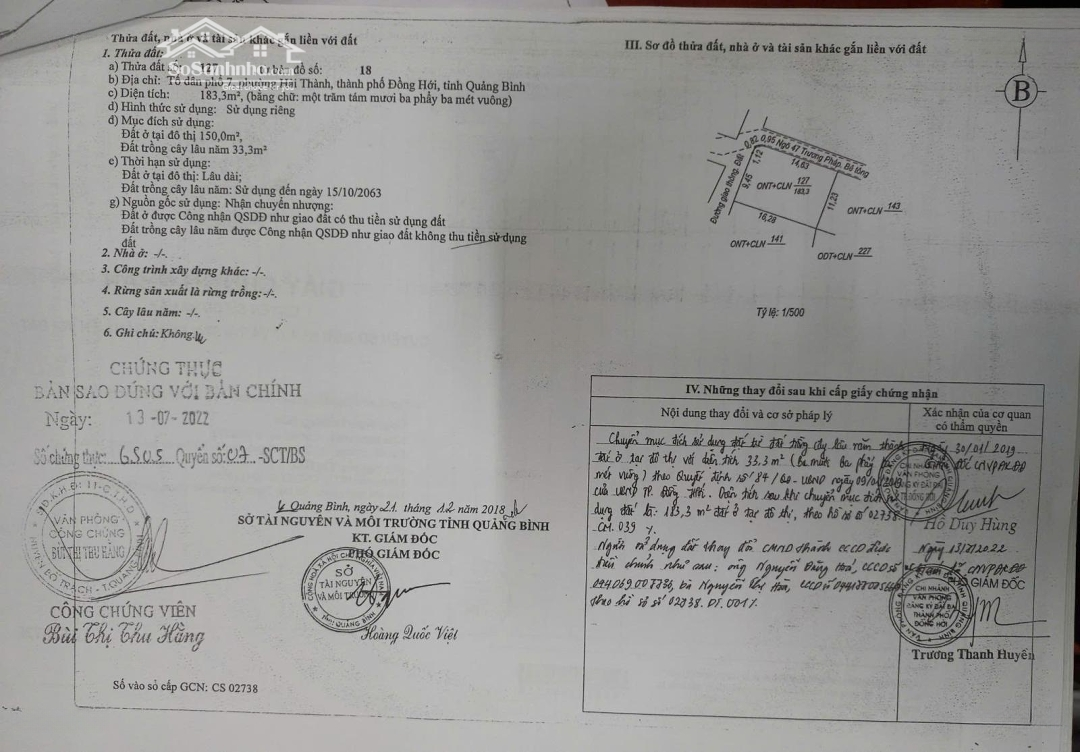 Thửa đất, nhà ở và tài sản khác gắn liền với đất
1. Thửa đất:
SoSanhnha.com
a) Thửa đất số: 127 bản đồ số: 18
b) Địa chỉ: Tổ dân phố 7, phường Hải Thành, thành phố Đồng Hới, tỉnh Quảng Bình
c) Diện tích: 183,3m², (bằng chữ: một trăm tám mươi ba phẩy ba mét vuông)
d) Hình thức sử dụng: Sử dụng riêng
đ) Mục đích sử dụng:
Đất ở tại đô thị 150,0m²,
Đất trồng cây lâu năm 33,3m²
e) Thời hạn sử dụng:
Đất ở tại đô thị: Lâu dài;
Đất trồng cây lâu năm: Sử dụng đến ngày 15/10/2063
g) Nguồn gốc sử dụng: Nhận chuyển nhượng:
Đất ở được Công nhận QSDĐ như giao đất có thu tiền sử dụng đất
Đất trồng cây lâu năm được Công nhận QSDĐ như giao đất không thu tiền sử dụng
đất
2. Nhà ở: -/-
3. Công trình xây dựng khác: -/-.
4. Rừng sản xuất là rừng trồng: -/-.
5. Cây lâu năm: -/-.
6. Ghi chú: Không
CHỨNG THỰC
BẢN SAO ĐÚNG VỚI BẢN CHÍNH
Ngày: 13-07-2022
Số chứng thực: 6505 Quyển số: 07 -SCT/BS
VĂN PHÒNG
CÔNG CHỨNG
BÙI THỊ THU HẰNG
CÔNG CHỨNG VIÊN
Bùi Thị Thu Hằng
Quảng Bình, ngày 21 tháng 12 năm 2018
SỞ TÀI NGUYÊN VÀ MÔI TRƯỜNG TỈNH QUẢNG BÌNH
KT. GIÁM ĐỐC
PHÓ GIÁM ĐỐC
SỞ
TÀI NGUYÊN
VÀ MÔI TRƯỜNG
Hoàng Quốc Việt
Số vào sổ cấp GCN: CS 02738
III. Sơ đồ thửa đất, nhà ở và tài sản khác gắn liền với đất
B
0,82 0,95 Ngõ 47 Trương Pháp, Bê tông
1,12
14,63
Đường giao thông, Đất
9,45
ONT+CLN 127
183,3
11,23
16,28
ONT+CLN 143
ONT+CLN 141
ODT+CLN 227
Tỷ lệ: 1/500
IV. Những thay đổi sau khi cấp giấy chứng nhận
Nội dung thay đổi và cơ sở pháp lý
Xác nhận của cơ quan
có thẩm quyền
Chuyển mục đích sử dụng đất từ đất trồng cây lâu năm thành
đất ở tại đô thị với diện tích 33,3 m² (ba mươi ba phẩy ba
mét vuông) theo Quyết định số 84/QĐ-UBND ngày
của UBND TP. Đồng Hới. Diện tích sau khi chuyển mục đích sử
dụng đất là: 183,3 m² đất ở tại đô thị, theo hồ sơ số 02738.
CM. 039
30/01/2019
Hồ Duy Hùng
Người sử dụng đất thay đổi CMND thành CCCD được
điều chỉnh như sau: ông Nguyễn Đăng Hoà, CCCD số
bà Nguyễn Thị Hòa, CCCD số
theo hồ sơ số 02738.
PHÓ GIÁM ĐỐC
CHI NHÁNH
VĂN PHÒNG
ĐĂNG KÝ ĐẤT ĐAI
THÀNH PHỐ
ĐỒNG HỚI
Trương Thanh Huyền